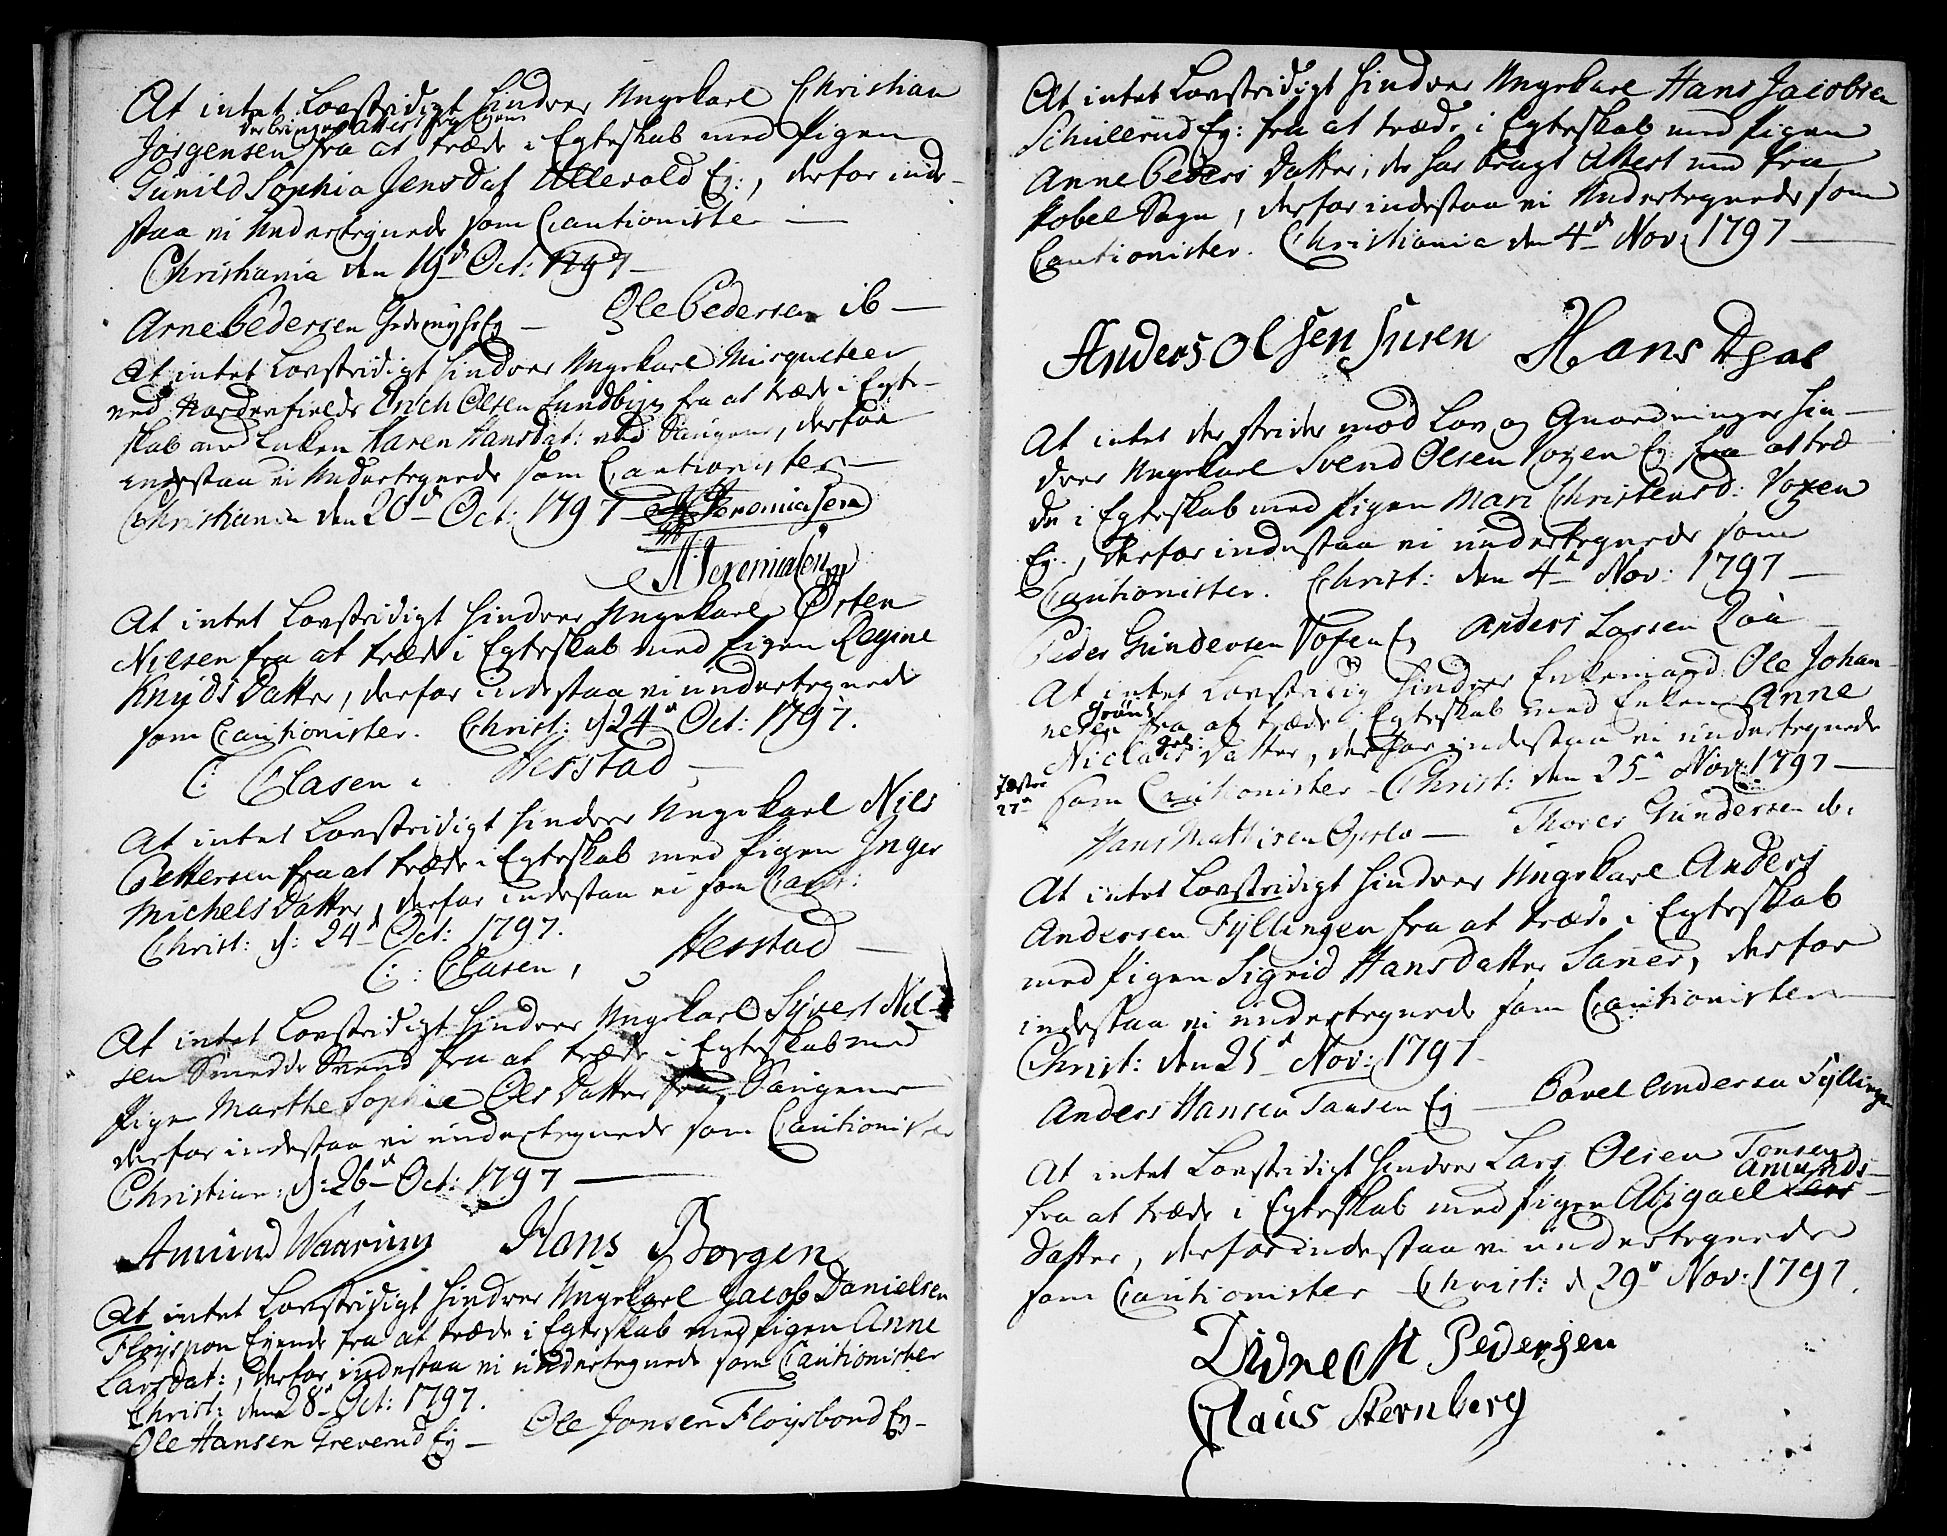 At intet Lovstridigt hindrer Ungekarl Christian
der bringer Attest fra Egnen
Jörgensen fra at træde i Egteskab med Pigen
Gunild Sophia Jensdat Ullevold Eg:, derfor inde-
staa vi Undertegnede som Cautionister
Christiania den 19d Oct: 1797
Arne Pedersen Eg Ole Pedersen ib
At intet Lovstridigt hindrer Ungekarl Musqueteer
ved Nordenfields Erich Olsen Lundbÿe fra at træde i Egte-
skab med Enken Karen Hansdat: ved Saugene, derfor
indestaa vi Undertegnede som Cautionister
Christiania den 20d Oct: 1797 Jeremiasen
Jeremiasen
At intet Lovstridigt hindrer Ungekarl Østen
Nielsen fra at træde i Egteskab med Pigen Regine
Knuds Datter, derfor indestaa vi undertegnede
som Cautionister. Christ: d 24d Oct: 1797.
C: Clasen Herstad
At intet Lovstridigt hindrer Ungekarl Niels
Pettersen fra at træde i Egteskab med Pigen Inger
Michels Datter, derfor indestaa vi som Caut:
Christ: d: 24d Oct: 1797.
C: Clasen, Herstad
At intet Lovstridigt hindrer Ungekarl Syvert Niel-
sen Smedde Svend fra at træde i Egteskab med
Pigen Marthe Sophie Ols Datter fra Saugene
derfor indestaa vi undertegnede som Cautionister
Christian: d: 26d Oct: 1797
Amund Waaring Hans Borgen
At intet Lovstridigt hindrer Ungekarl Jacob Danielsen
Flöyspon Eyende fra at træde i Egteskab med Pigen Anne
Larsdat:, derfor indestaa vi undertegnede som Cautionister
Christ: den 28d Oct: 1797.
Ole Hansen Greverud Eg Ole Jonsen Floysbond Eg
At intet Lovstridigt hindrer Ungekarl Hans Jacobsen
Schullerud Eg: fra at træde i Egteskab med Pigen
Anne Peders Datter, der har bragt Attest med fra
Sogn, derfor indestaa vi Undertegnede som
Cautionister. Christiania den 4d Nov: 1797
Anders Olsen Hans Dahl
At intet der strider mod Lov og Anordninger hin-
drer Ungekarl Svend Olsen Voxen Eg fra at træ-
de i Egteskab med Pigen Mari Christensd: Voxen
Eg:, derfor indestaa vi undertegnede som
Cautionister. Christ: den 4d Nov: 1797
Peder Gundersen Voxen Eg Anders Larsen Roa
At intet Lovstridig hindrer Enkemand Ole Johan-
nesen Grönd fra at træde i Egteskab med Enken Anne
Niclais Datter, derfor indestaa vi undertegnede
27d som Cautionister Christ: den 25d Nov: 1797
Hans Mathisen Opslo Thores Gundersen ib.
At intet Lovstridigt hindrer Ungekarl Anders
Andersen Fyllingen fra at træde i Egteskab
med Pigen Sigrid Hansdatter Saner, derfor
indestaa vi undertegnede som Cautionister
Christ: den 25d Nov: 1797
Anders Hansen Tansen Eg Povel Andersen Fyllingen
At intet Lovstridigt hindrer Lars Olsen Tonsen
Amunds-
fra at træde i Egteskab med Pigen Abigael Lars-
datter, derfor indestaa vi undertegnede
som Cautionister Christ: d 29d Nov: 1797.
Didrech Pedersen
Claus Sternberg